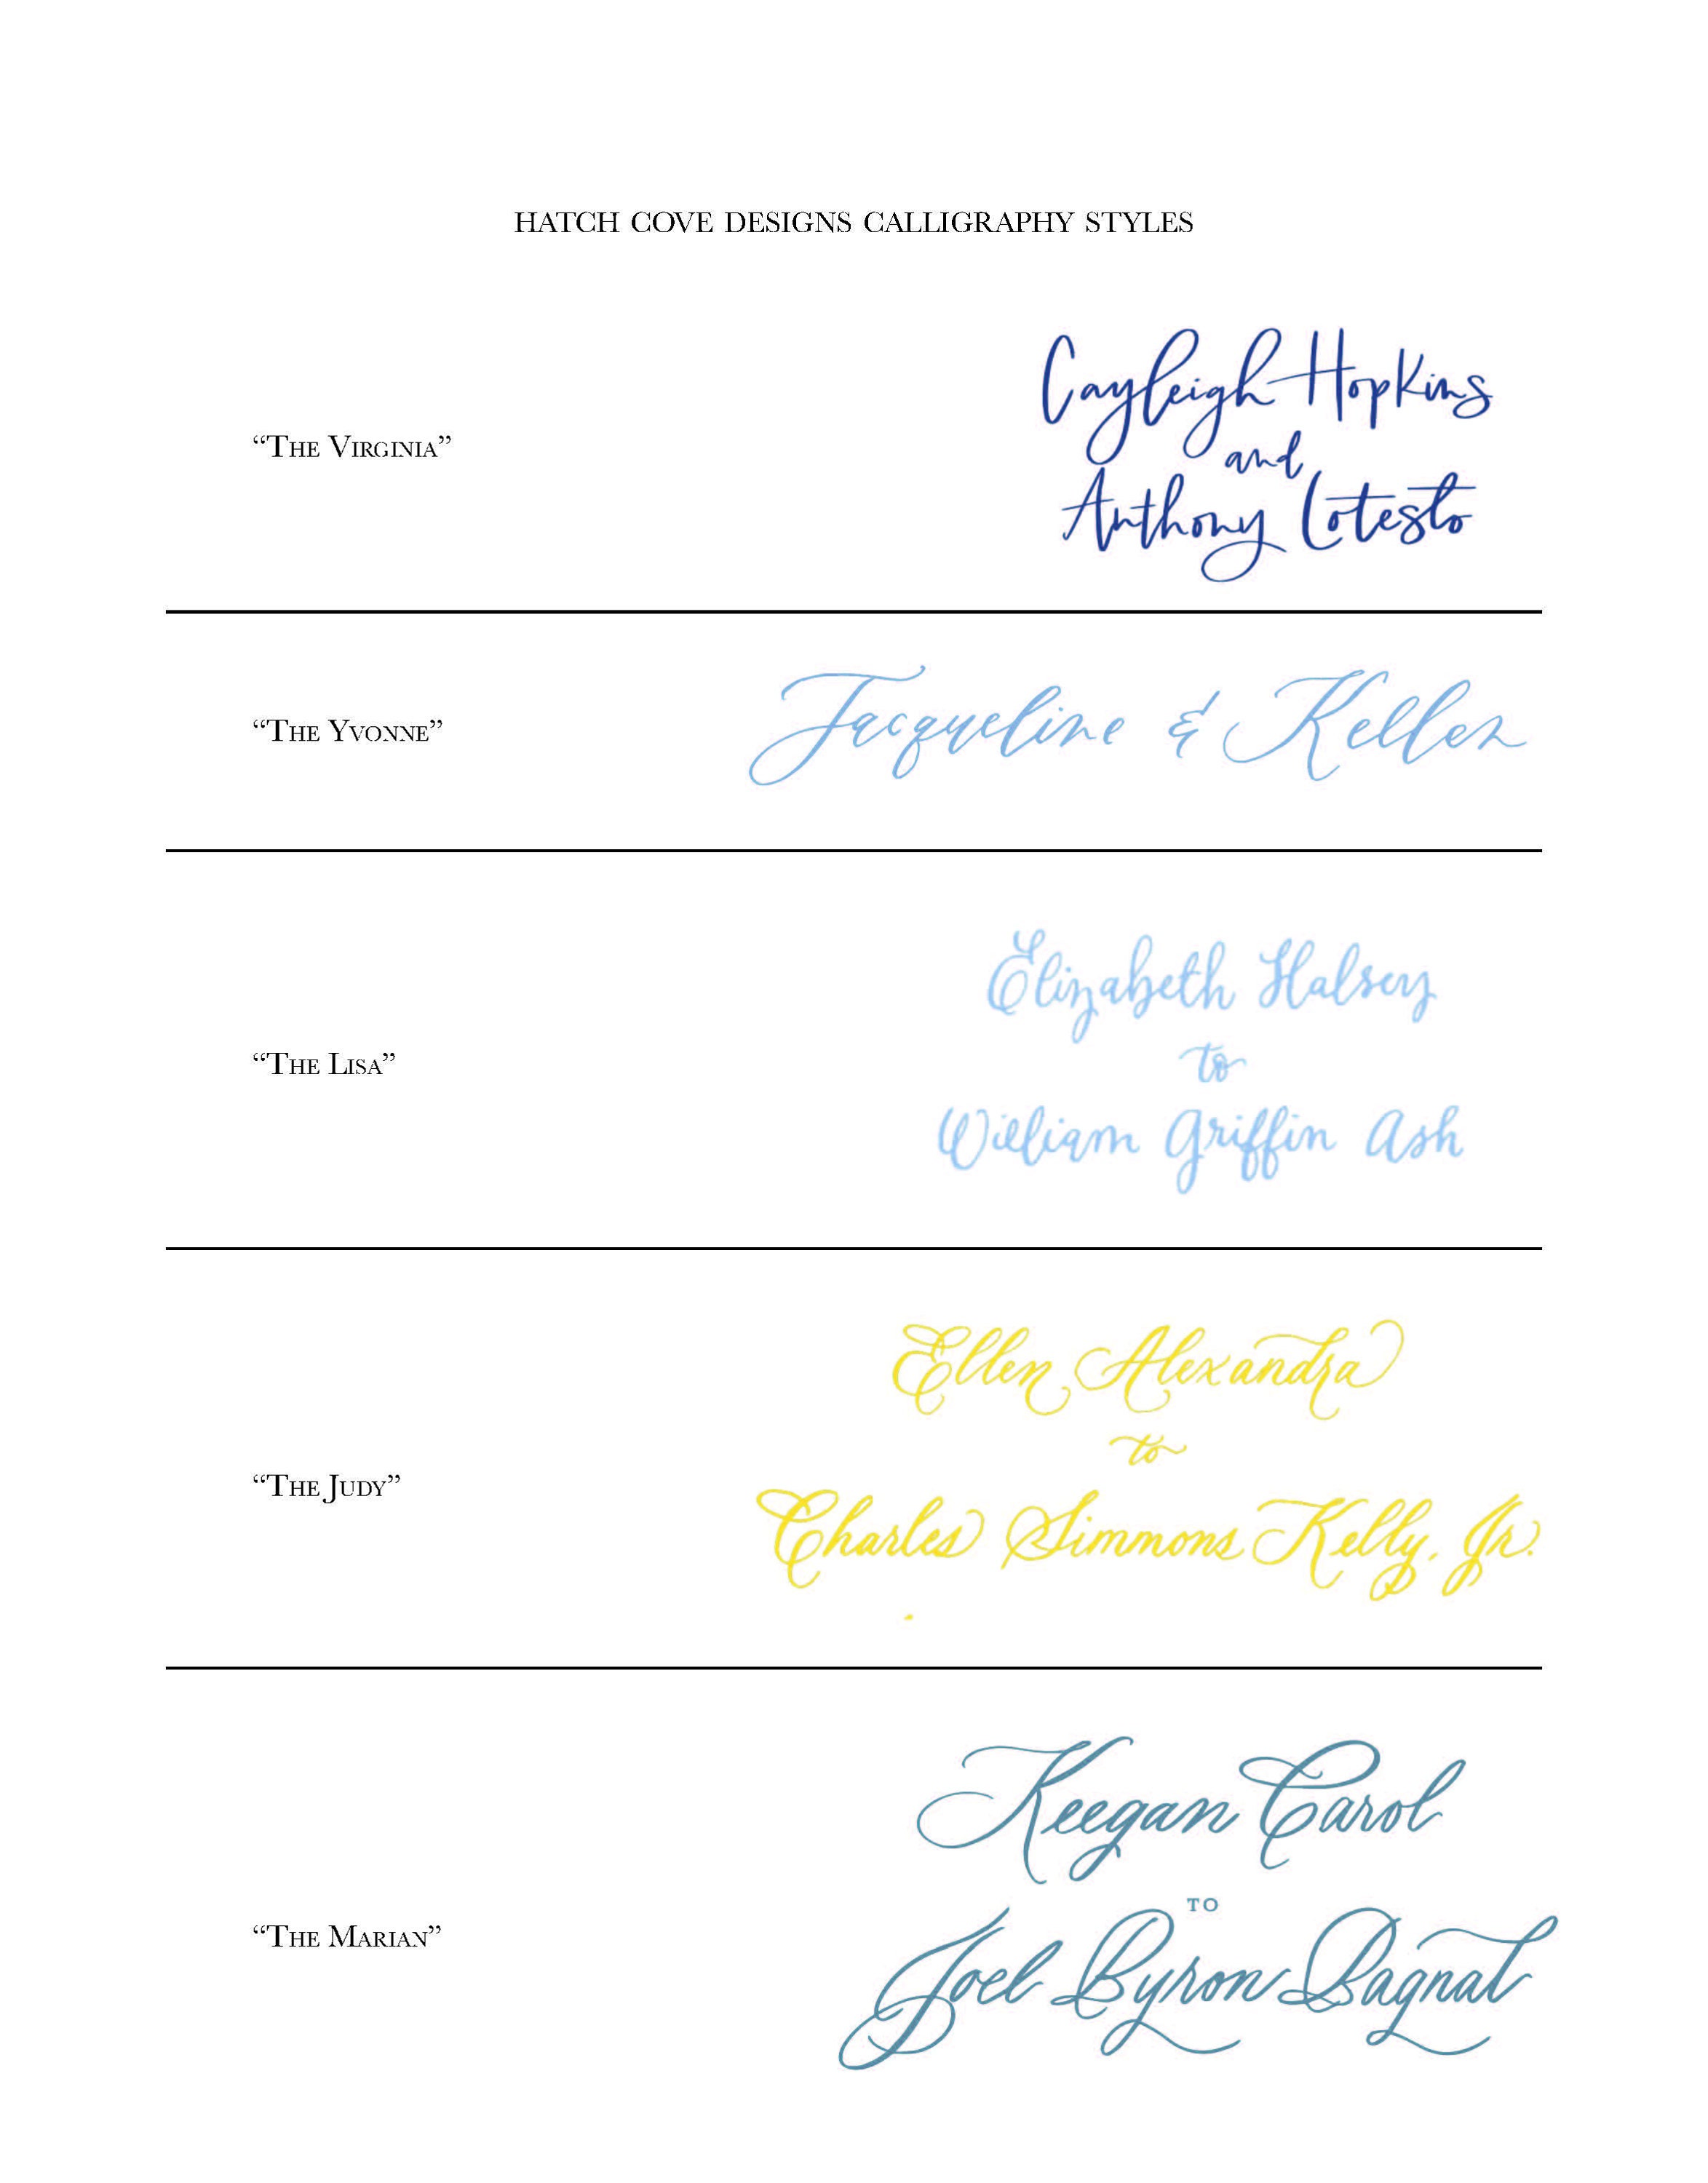 HATCH COVE DESIGNS CALLIGRAPHY STYLES
“THE VIRGINIA”
Cayleigh Hopkins
and
Anthony Lotesto
“THE YVONNE”
Jacqueline & Keller
“THE LISA”
Elizabeth Halsey
to
William Griffin Ash
“THE JUDY”
Ellen Alexandra
to
Charles Simmons Kelly, Jr.
“THE MARIAN”
Keegan Carol
TO
Joel Byron Bagnal